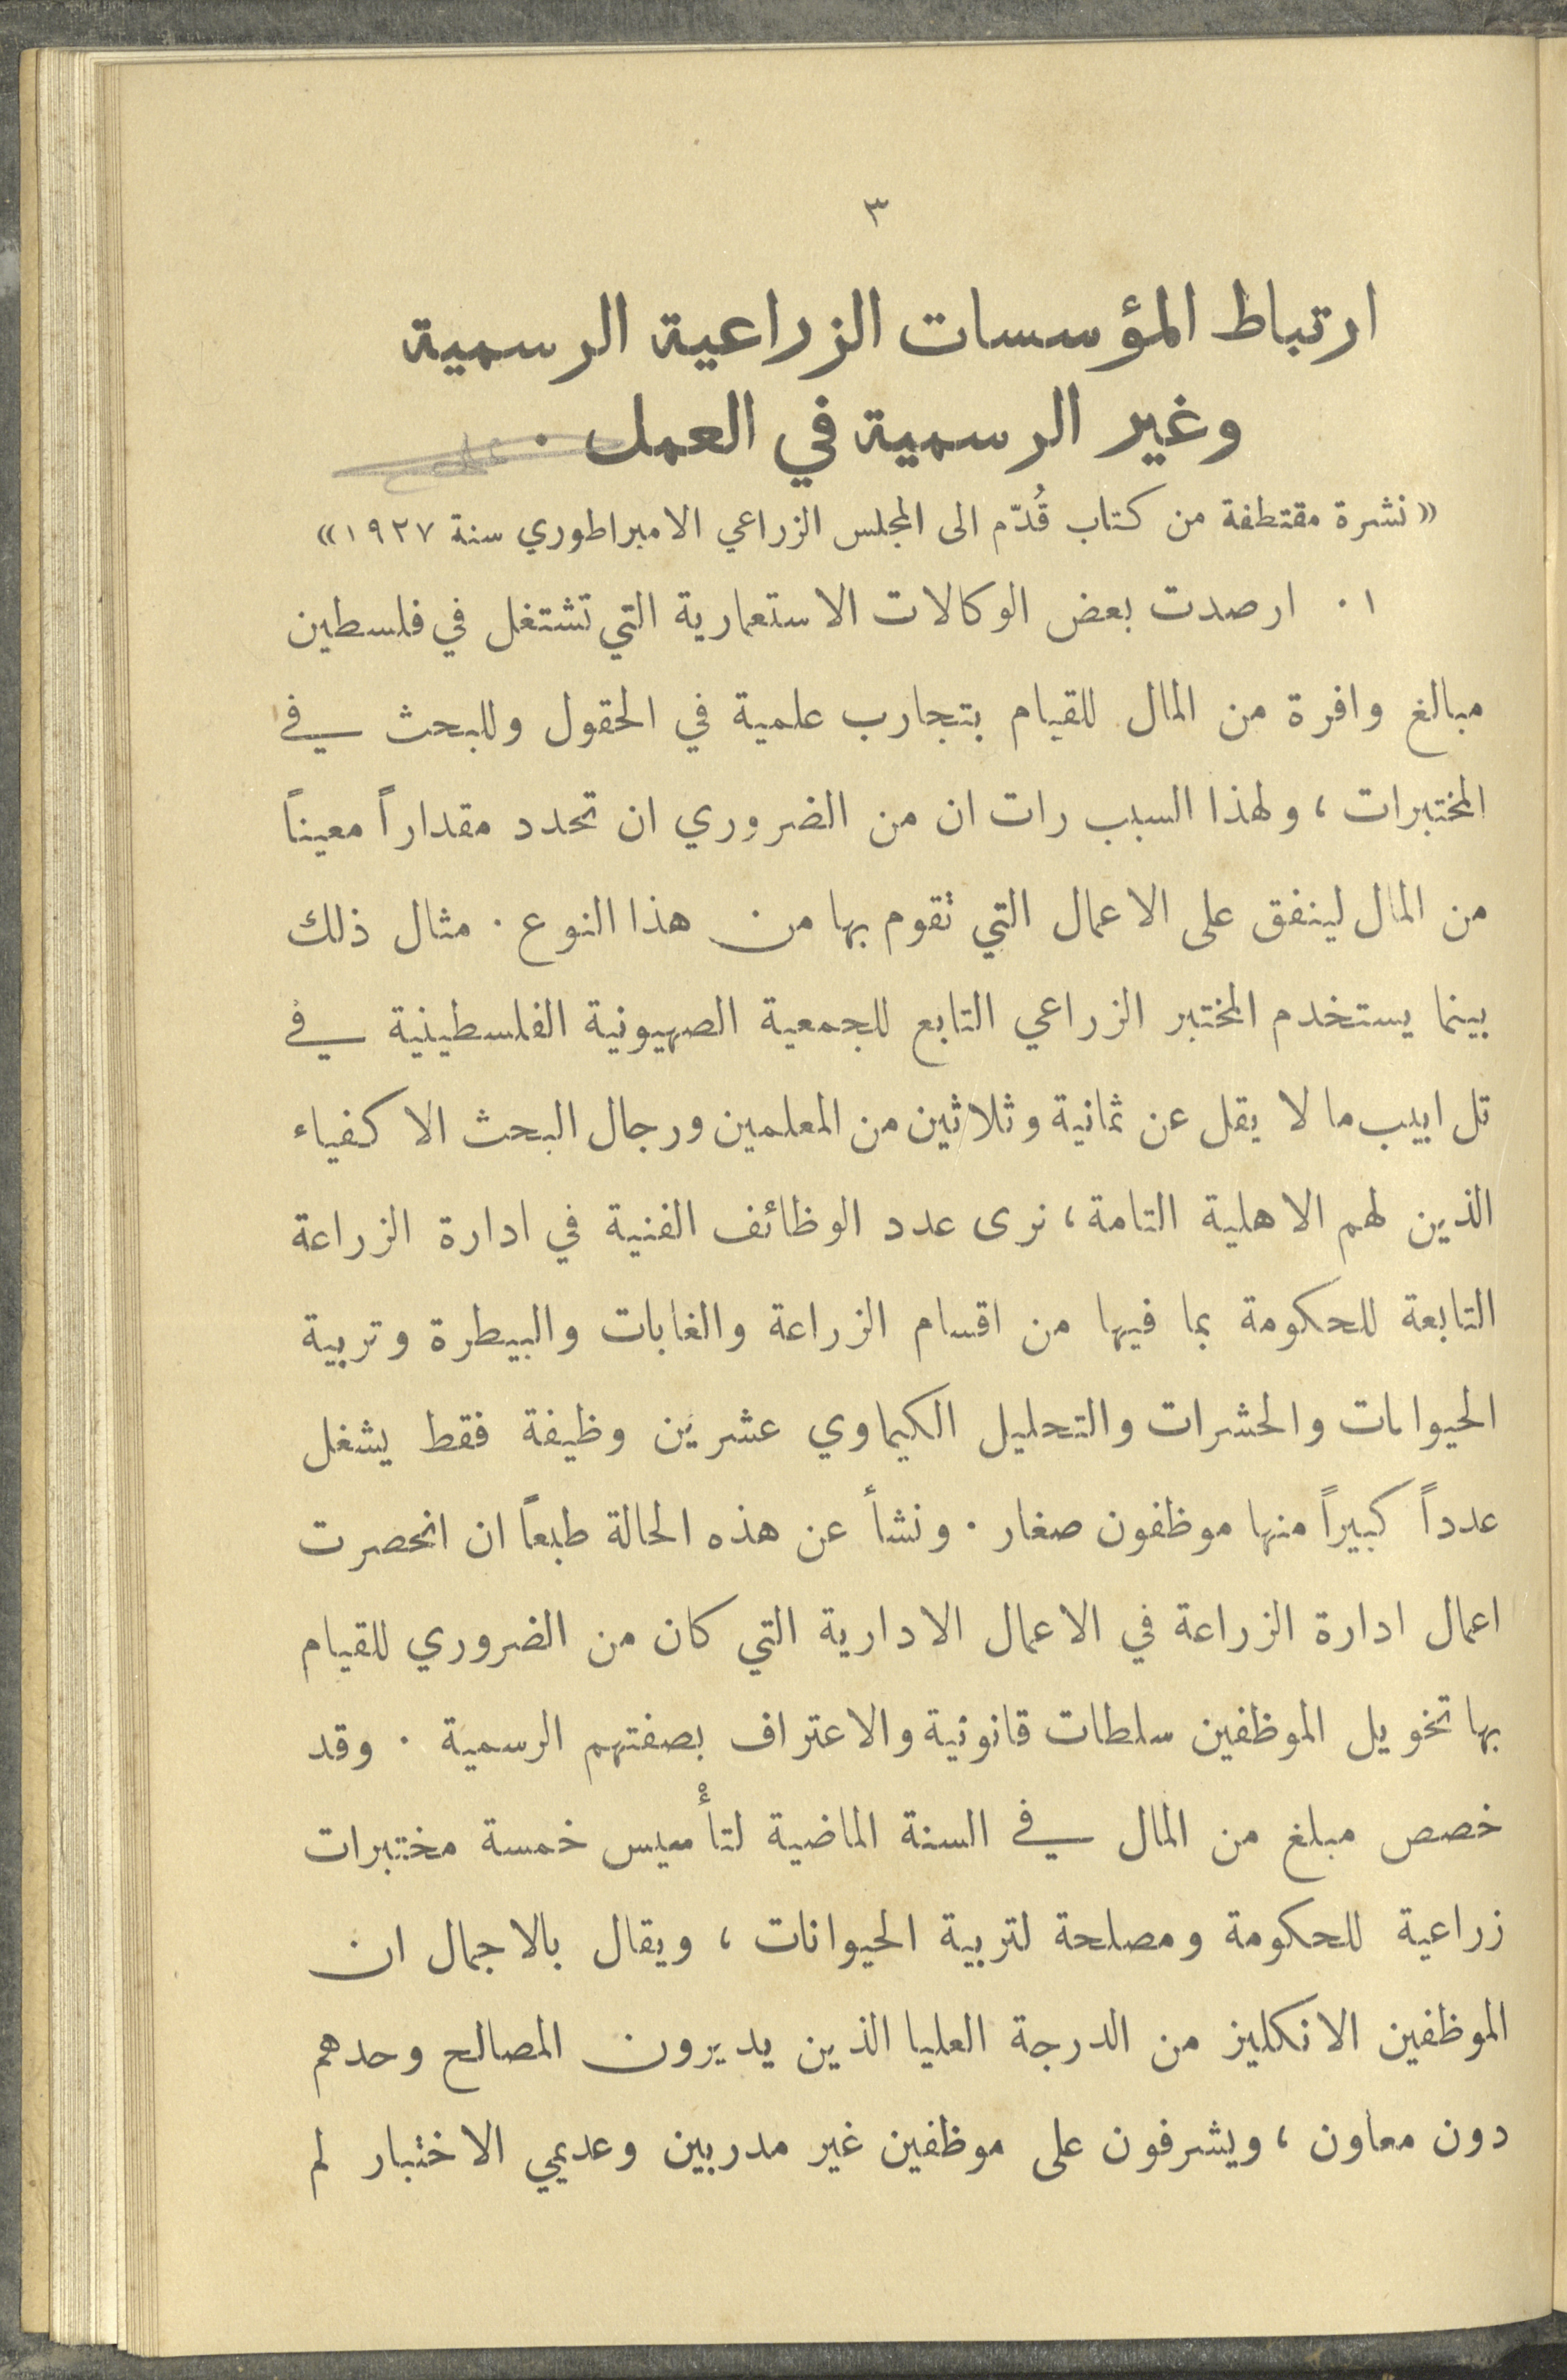 ٣
ارتباط المؤسسات الزراعية الرسمية
وغير الرسمية في العمل .
«نشرة مقتطفة من كتاب قُدّم الى المجلس الزراعي الامبراطوري سنة ١٩٢٧»
١ . ارصدت بعض الوكالات الاستعمارية التي تشتغل في فلسطين
مبالغ وافرة من المال للقيام بتجارب علمية في الحقول وللبحث في
المختبرات ، ولهذا السبب رات ان من الضروري ان تحدد مقداراً معيناً
من المال لينفق على الاعمال التي تقوم بها من هذا النوع . مثال ذلك
بينما يستخدم المختبر الزراعي التابع للجمعية الصهيونية الفلسطينية في
تل ابيب ما لا يقل عن ثمانية وثلاثين من المعلمين ورجال البحث الاكفياء
الذين لهم الاهلية التامة ، نرى عدد الوظائف الفنية في ادارة الزراعة
التابعة للحكومة بما فيها من اقسام الزراعة والغابات والبيطرة وتربية
الحيوانات والحشرات والتحليل الكيماوي عشرين وظيفة فقط يشغل
عدداً كبيراً منها موظفون صغار . ونشأ عن هذه الحالة طبعاً ان انحصرت
اعمال ادارة الزراعة في الاعمال الادارية التي كان من الضروري للقيام
بها تخويل الموظفين سلطات قانونية والاعتراف بصفتهم الرسمية . وقد
خصص مبلغ من المال في السنة الماضية لتأْسيس خمسة مختبرات
زراعية للحكومة ومصلحة لتربية الحيوانات ، ويقال بالاجمال ان
الموظفين الانكليز من الدرجة العليا الذين يديرون المصالح وحدهم
دون معاون ، ويشرفون على موظفين غير مدربين وعديمي الاختبار لم